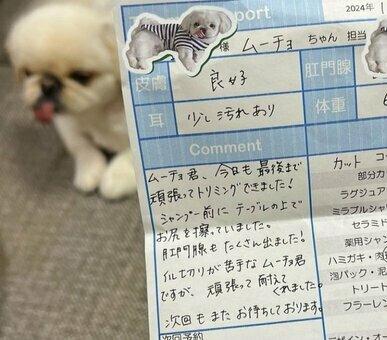 port
2024年
様 ムーチョ ちゃん 担当
皮膚 良好 肛門腺
耳 少し汚れあり 体重
Comment
カット コ
ムーチョ君、今日も最後まで
頑張ってトリミングできました!
シャンプー前にテーブルの上で
お尻を擦っていました。
肛門腺もたくさん出ました!
爪切りが苦手なムーチョ君
ですが、頑張って耐えて
くれました。
次回もまたお待ちしております。
次回予約
部分カ
ラグジュア
ミラブルシャ
セラミド
薬用シャン
ハミガキ・肉
泡パック・泥
トリート
フラーレン
デザイン・オー